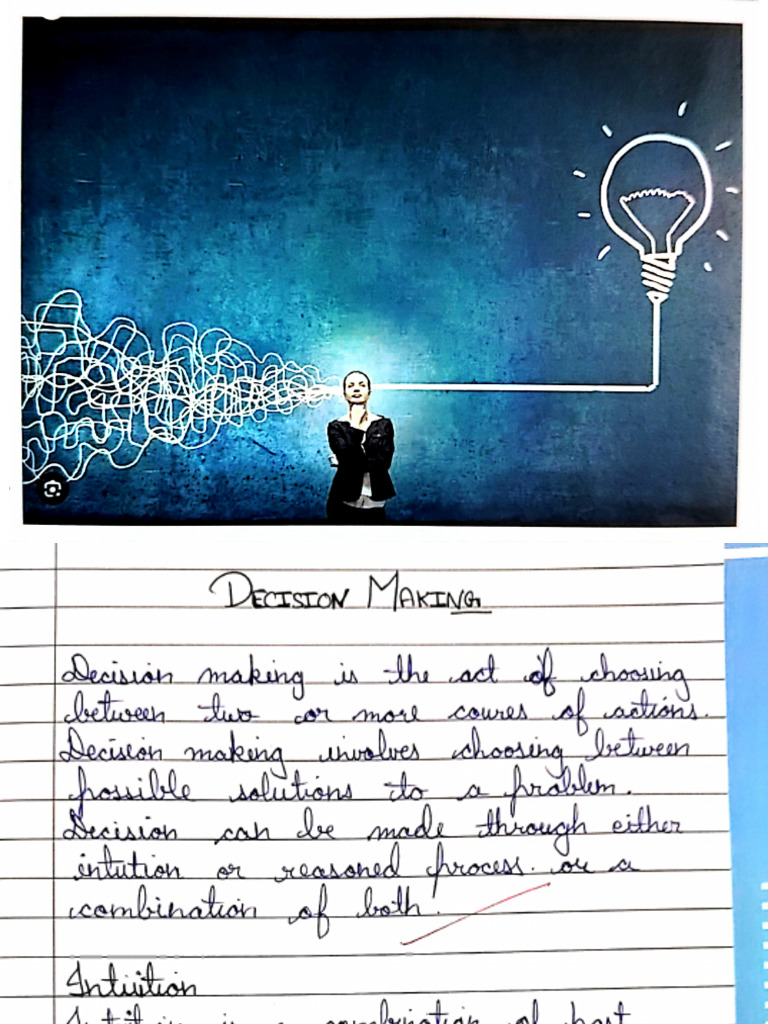 DECISION MAKING
Decision making is the act of choosing
between two or more coures of actions.
Decision making involves choosing between
possible solutions to a problem.
Decision can be made through either
intution or reasoned process. or a
combination of both.
Intuition
is a combination of past